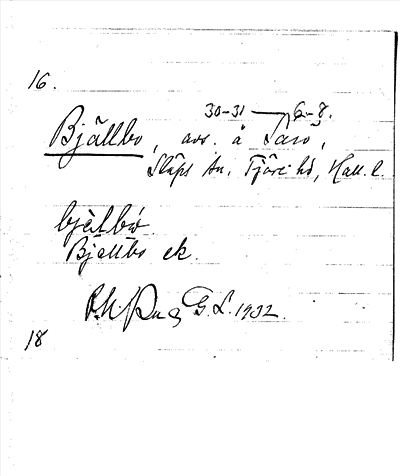 16.
30-31 6-8.
Bjällbo, avs. å Särö,
Släps sn, Fjäre hd, Hall. l.
bjälbo.
Bjällbo ek.
G. L. 1932.
18